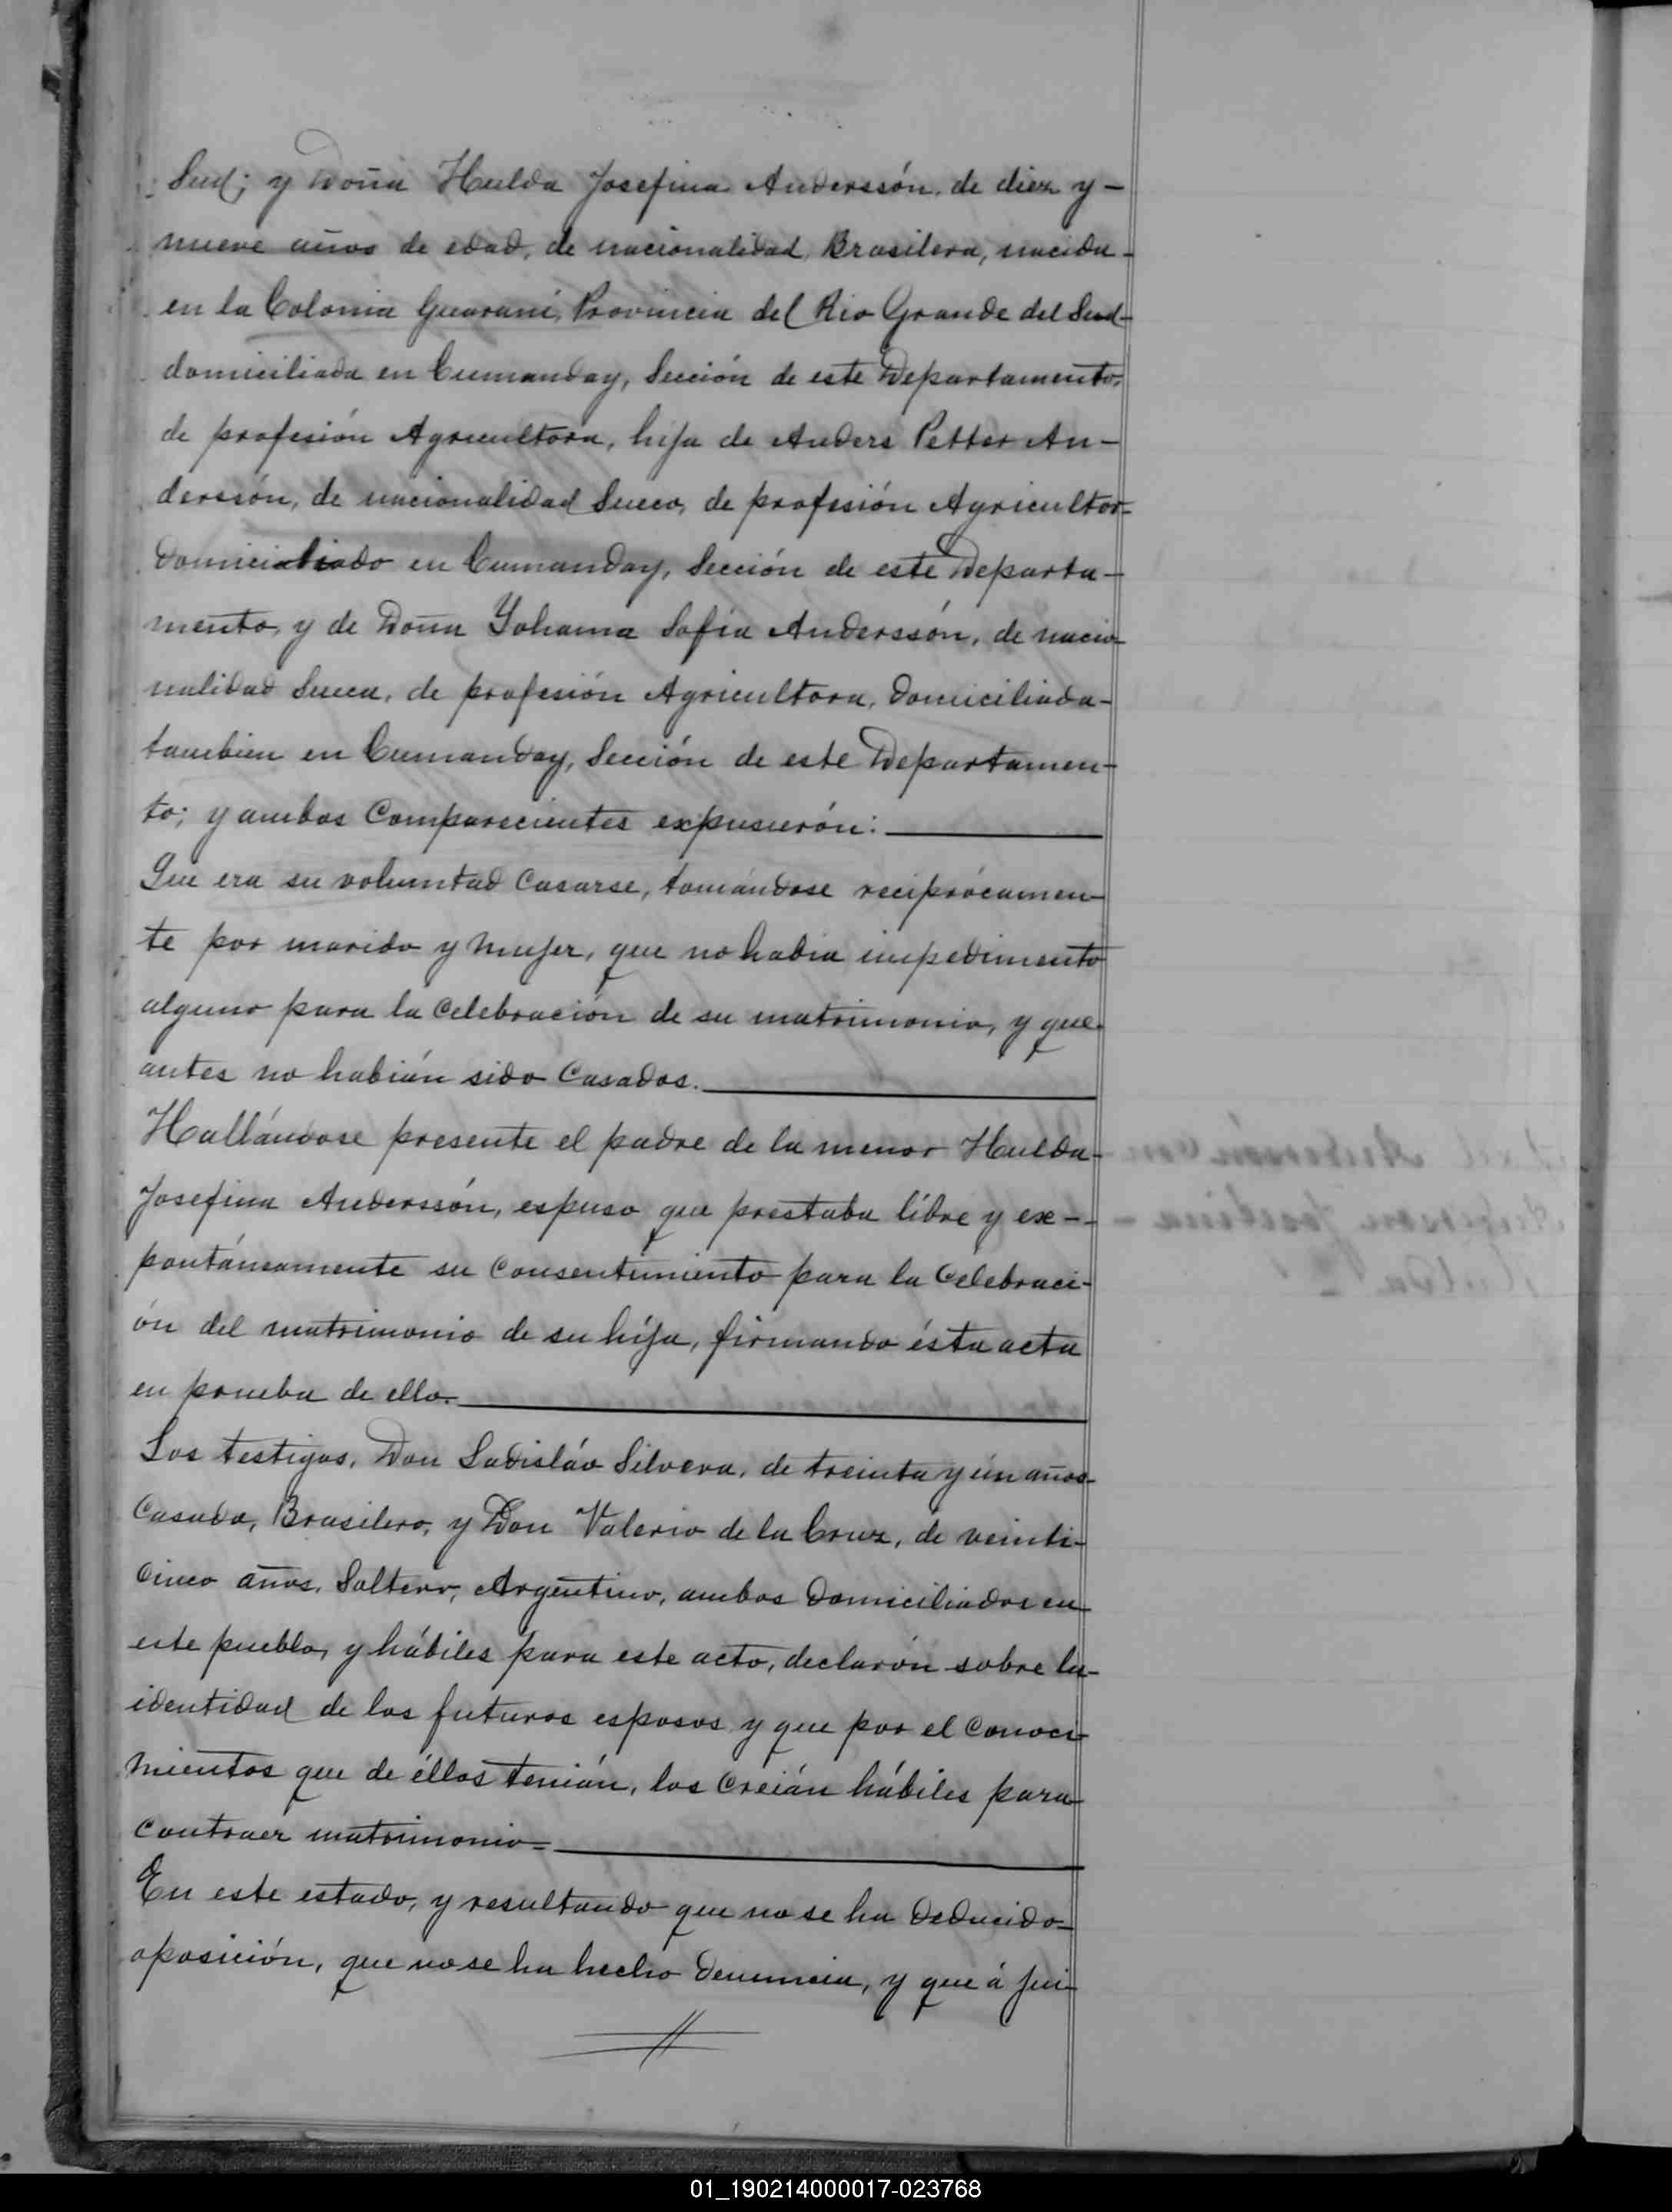 Sud; y Doña Hulda Josefina Anderssón, de diez y-
nueve años de edad, de nacionalidad Brasilera, nacida-
en la Colonia Guarani, Provincia del Rio Grande del Sud-
domiciliada en Cumanday, Sección de este Departamento,
de profesión Agricultora, hija de Anders Petter An-
derssón, de nacionalidad Sueco, de profesión Agricultor-
Domiciliado en Cumanday, Sección de este Departa-
mento, y de Doña Yohanna Sofía Anderssón, de nacio-
nalidad Sueca, de profesión Agricultora, Domiciliada-
tambien en Cumanday, Sección de este Departamen-
to; y ambos Comparecientes expusierón:
Que era su voluntad Casarse, tomándose recíprócamen-
te por marido y Mujer, que no habia impedimento
alguno para la Celebración de su matrimonio, y que
antes no habián sido Casados.
Hallándose presente el padre de la menor Hulda-
Josefina Anderssón, espuso que prestaba líbre y ex--
pontáneamente su Consentimiento para la Celebraci-
ón del matrimonio de su híja, firmando ésta acta
en prueba de ello.
Los testigos, Don Ladisláo Silvera, de treinta y ún años-
Casado, Brasilero, y Don Valerio de la Cruz, de veinti-
Cinco años, Soltero, Argentino, ambos Domiciliados en
este pueblo, y hábiles para este acto, declarón sobre la-
identidad de los futuros esposos y que por el Conoci-
mientos que de éllos tenián, los Creián hábiles para
Contraer matrimonio=
En este estado, y resultando que no se ha Deducido=
oposición, que no se ha hecho Denuncia, y que á jui-
01_190214000017-023768